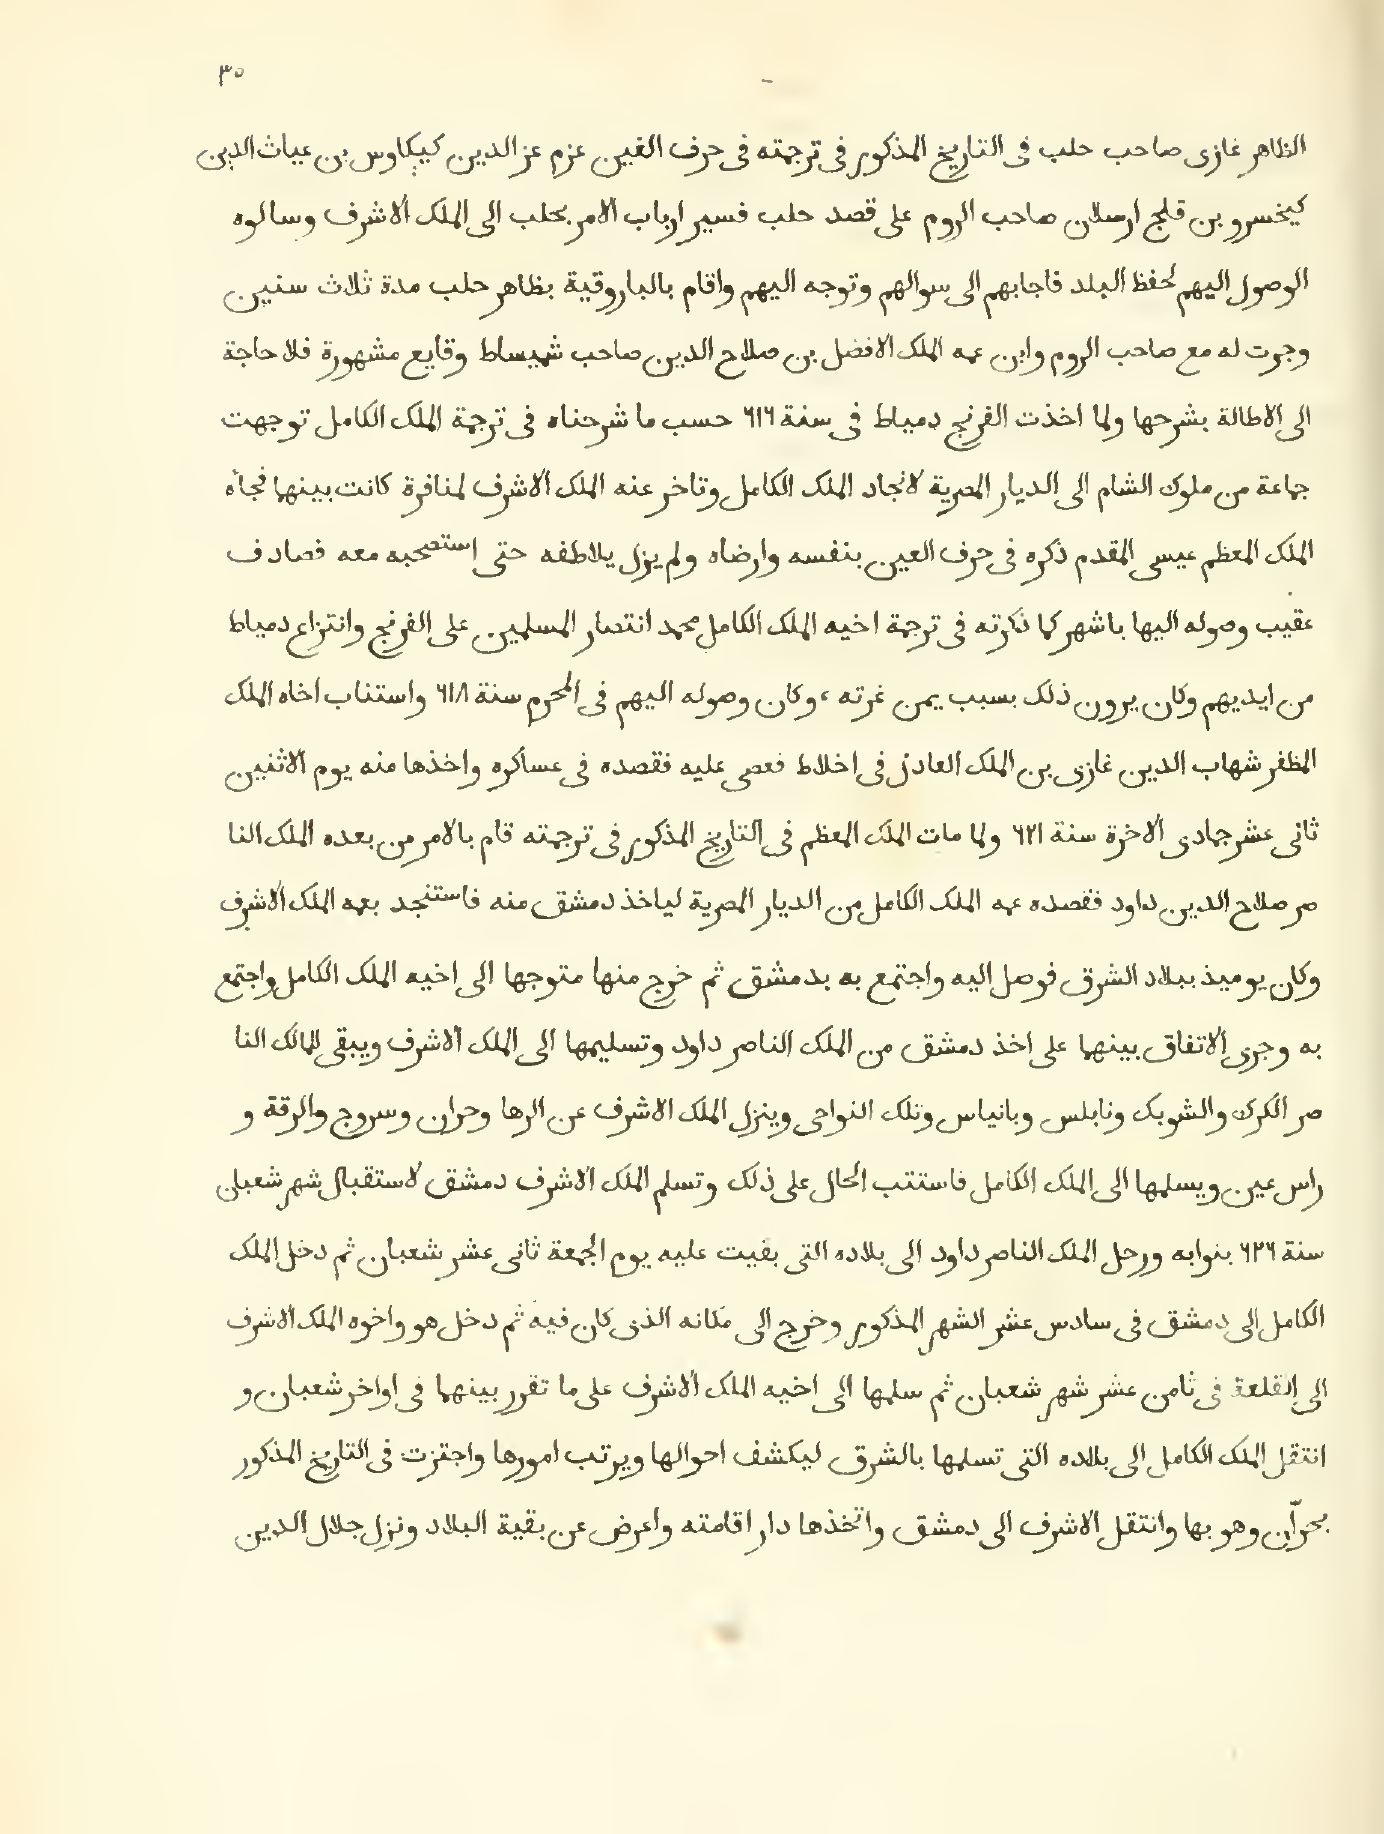 ٣٥
الظاهر غازى صاحب حلب فى التاريخ المذكور فى ترجمته فى حرف الغين عزم عز الدين كيكاوس بن غياث الدين
كيخسرو بن قلج ارسلان صاحب الروم على قصد حلب فسير ارباب الامر بحلب الى الملك الاشرف وسالوه
الوصول اليهم لحفظ البلد فاجابهم الى سوالهم وتوجه اليهم واقام بالباروقية بظاهر حلب مدة ثلاث سنين
وجرت له مع صاحب الروم وابن عمه الملك الافضل بن صلاح الدين صاحب شميساط وقايع مشهورة فلا حاجة
الى الاطالة بشرحها ولما اخذت الفرنج دمياط فى سنة ٦١٦ حسب ما شرحناه فى ترجمة الملك الكامل توجهت
جماعة من ملوك الشام الى الديار المصرية لانجاد الملك الكامل وتاخر عنه الملك الاشرف لمنافرة كانت بينهما فجاه
الملك المعظم عيسى المقدم ذكره فى حرف العين بنفسه وارضاه ولم يزل يلاطفه حتى استصحبه معه فصادف
عقيب وصوله اليها باشهر كما ذكرته فى ترجمة اخيه الملك الكامل محمد انتصار المسلمين على الفرنج وانتزاع دمياط
من ايديهم وكان يرون ذلك بسبب يمن غرته ، وكان وصوله اليهم فى المحرم سنة ٦١٨ واستناب اخاه الملك
المظفر شهاب الدين غازى بن الملك العادل فى اخلاط فعصى عليه فقصده فى عساكره واخذها منه يوم الاثنين
ثانى عشر جمادى الاخرة سنة ٦٢١ ولما مات الملك المعظم فى التاريخ المذكور فى ترجمته قام بالامر من بعده الملك النا
صر صلاح الدين داود فقصده عمه الملك الكامل من الديار المصرية لياخذ دمشق منه فاستنجد بعمه الملك الاشرف
وكان يوميذ ببلاد الشرق فوصل اليه واجتمع به بدمشق ثم خرج منها متوجها الى اخيه الملك الكامل واجتمع
به وجرى الاتفاق بينهما على اخذ دمشق من الملك الناصر داود وتسليمها الى الملك الاشرف ويبقى للمالك النا
صر الكرك والشوبك ونابلس وبانياس وتلك النواحى وينزل الملك الاشرف عن الرها وحران وسروج والرقة و
راس عين ويسلمها الى الملك الكامل فاستتب الحال على ذلك وتسلم الملك الاشرف دمشق لاستقبال شهر شعبان
سنة ٦٢٦ بنوابه ورحل الملك الناصر داود الى بلاده التى بقيت عليه يوم الجمعة ثانى عشر شعبان ثم دخل الملك
الكامل الى دمشق فى سادس عشر الشهر المذكور وخرج الى مكانه الذى كان فيه ثم دخل هو واخوه الملك الاشرف
الى القلعة فى ثامن عشر شهر شعبان ثم سلمها الى اخيه الملك الاشرف على ما تقرر بينهما فى اواخر شعبان و
انتقل الملك الكامل الى بلاده التى تسلمها بالشرق ليكشف احوالها ويرتب امورها واجتزت فى التاريخ المذكور
بحرّان وهو بها وانتقل الاشرف الى دمشق واتخذها دار اقامته واعرض عن بقية البلاد ونزل جلال الدين